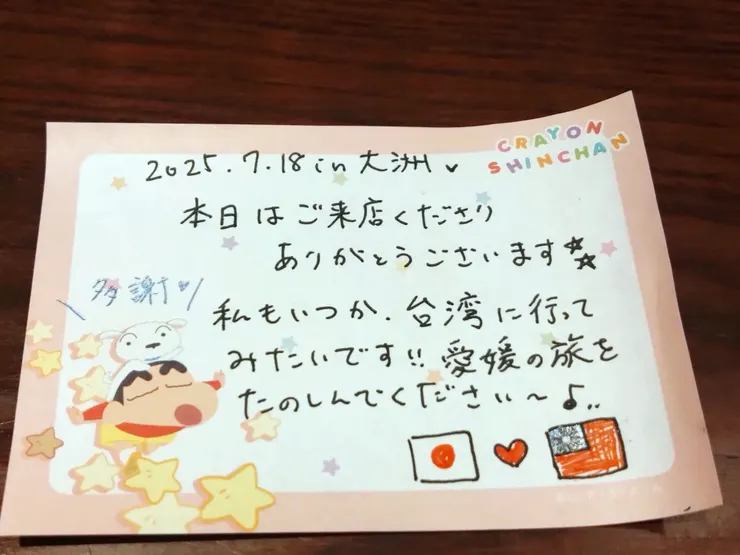 CRAYON
SHINCHAN
2025.7.18 in 大洲♥
本日はご来店くださり
ありがとうございます☆☆
\ 多謝♡ /
私もいつか、台湾に行って
みたいです!! 愛媛の旅を
たのしんでください〜♪..